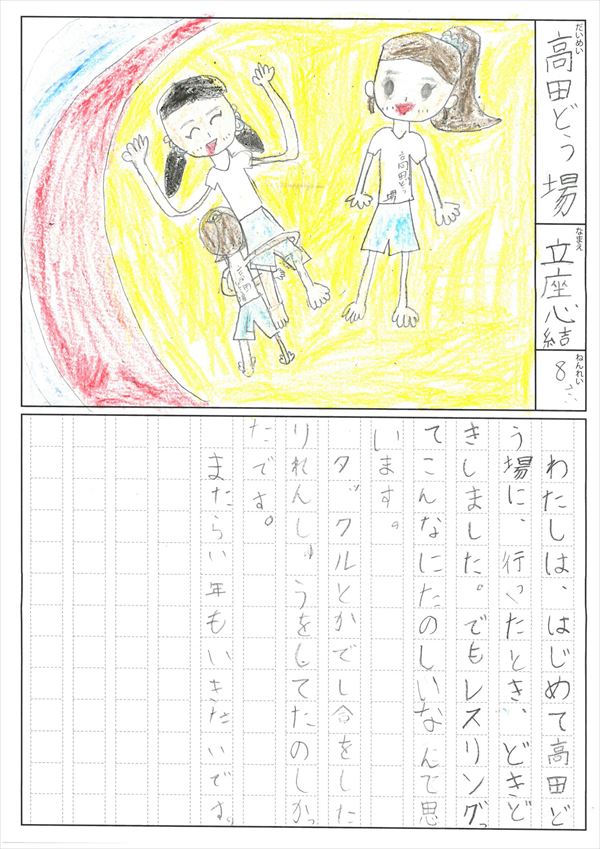 だいめい
高田どう場
なまえ
立座心結
ねんれい
8さい
高田どう
場
わたしは、はじめて高田ど
う場に、行ったとき、どきど
きしました。でもレスリングっ
てこんなにたのしいなんて思
います。
タックルとかでし合をした
りれんしゅうをしてたのしかっ
たです。
またらい年もいきたいです。